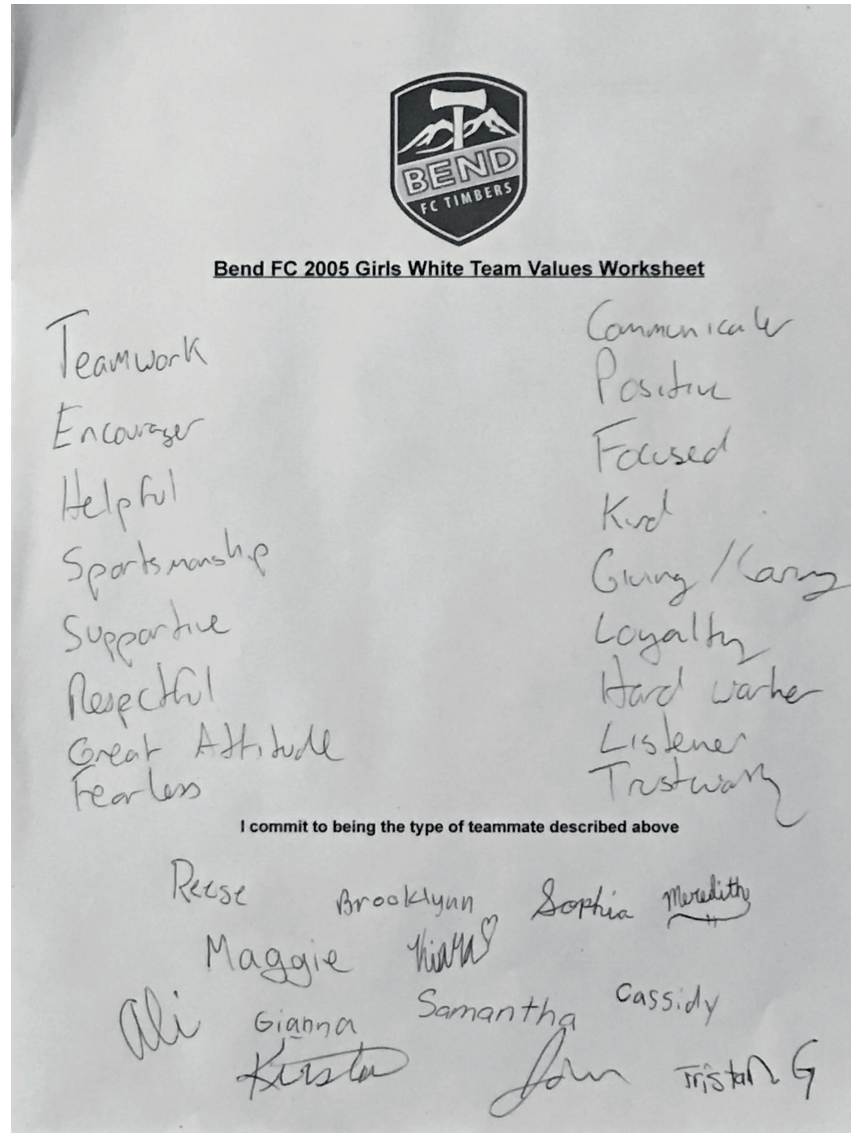 BEND
FC TIMBERS
Bend FC 2005 Girls White Team Values Worksheet
Teamwork
Encourager
Helpful
Sportsmanship
Supportive
Respectful
Great Attitude
Fearless
Communicate
Positive
Focused
Kind
Giving / Caring
Loyalty
Hard worker
Listener
Trustworthy
I commit to being the type of teammate described above
Reese Brooklynn Sophia Meredith
Maggie Kiara
Ali Gianna Samantha Cassidy
Kirsta John Tristan G